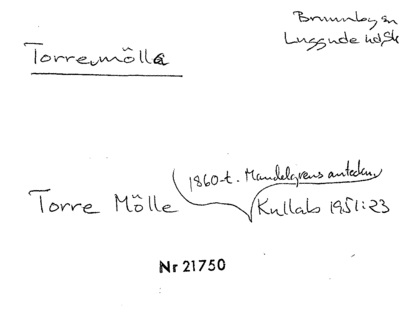 Brunnby sn
Luggude hd, Sk
Torremölla
1860-t. Mandelgrens anteckn.
Torre Mölle
Kullabs 1951:23
Nr 21750